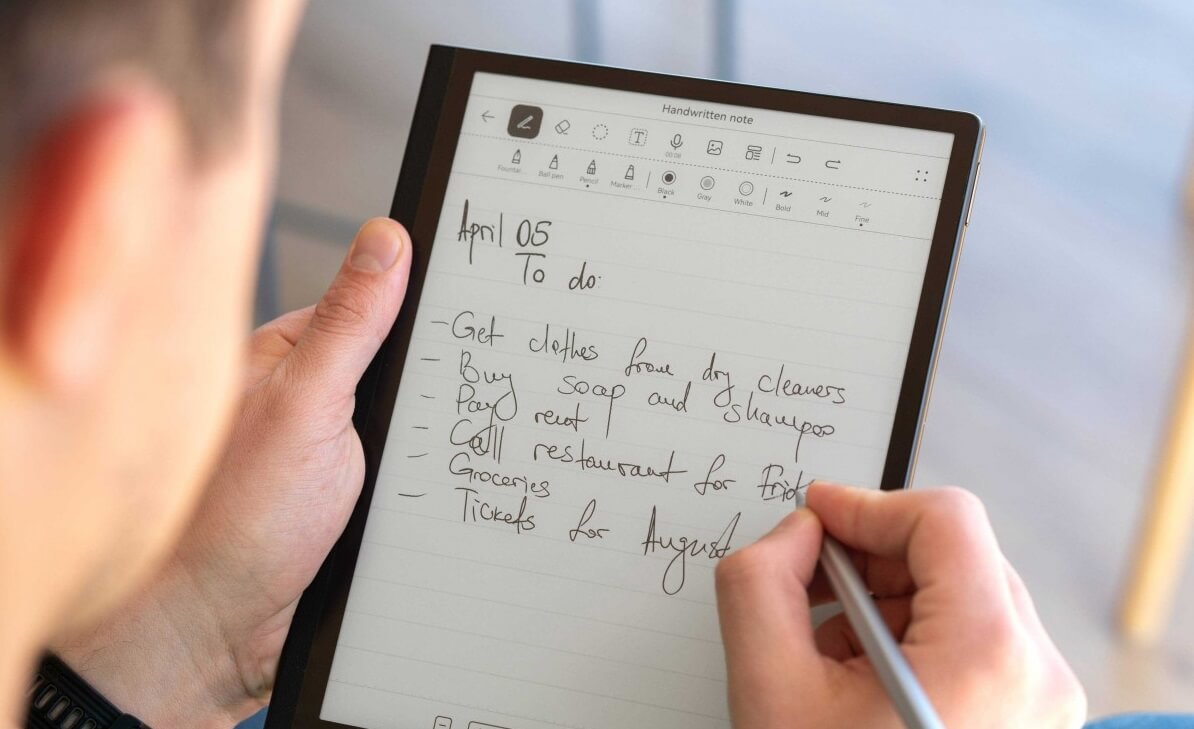 Handwritten note
T
00:08
Fountai... Ball pen Pencil Marker... Black Gray White Bold Mid Fine
April 05
To do:
- Get clothes from dry cleaners
- Buy soap and shampoo
- Pay rent
- Call restaurant for
- Groceries
- Tickets for August